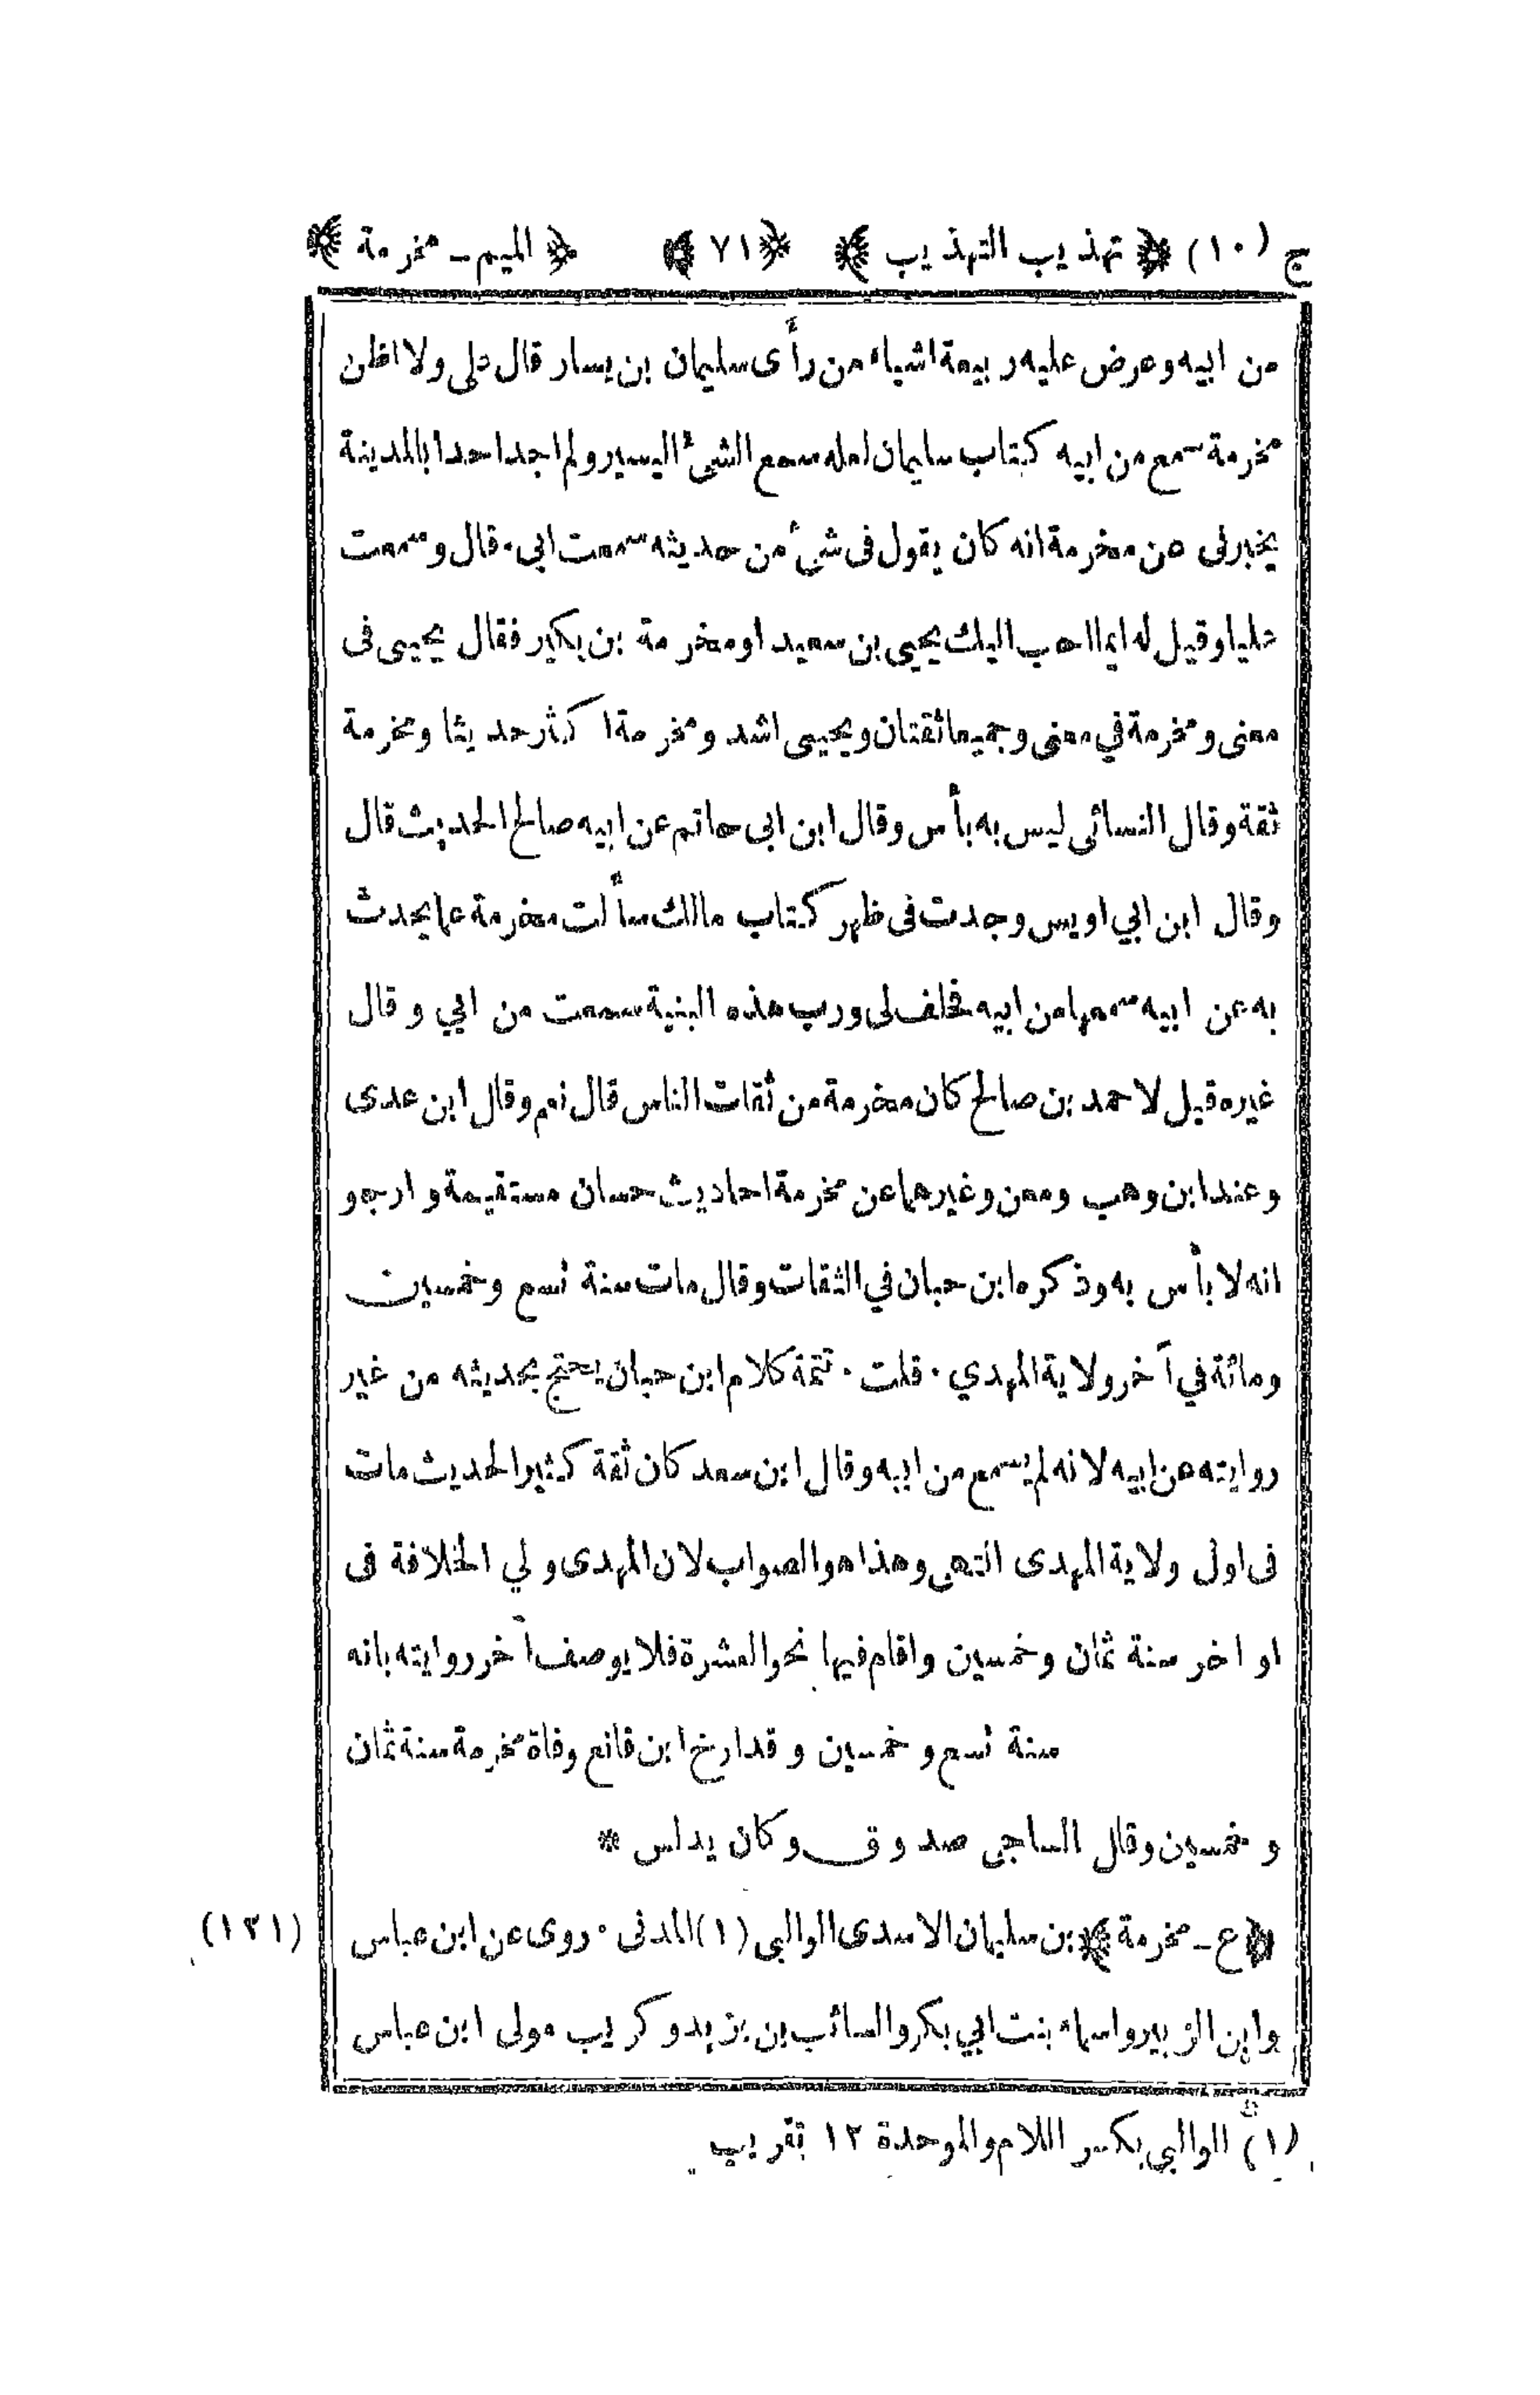 ج (١٠) ﴿ تهذيب التهذيب ﴾ ﴿٧١﴾ ﴿ الميم ـ مخرمة ﴾
من ابيه وعرض عليه ربيعة اشياء من رأى سليمان بن يسار قال على ولا اظن
مخرمة سمع من ابيه كتاب سليمان لعله سمع الشئ اليسير ولم اجد احدا بالمدينة
يخبرنى عن مخرمة انه كان يقول فى شئ من حديثه سمعت ابى ٠ قال وسمعت
عليا وقيل له ايما احب اليك يحيى بن سعيد او مخرمة بن بكير فقال يحيى فى
معنى ومخرمة في معنى وجميعا ثقتان ويحيى اشد ومخرمة اكثر حديثا ومخرمة
ثقة وقال النسائى ليس به بأس وقال ابن ابى حاتم عن ابيه صالح الحديث قال
وقال ابن ابي اويس وجدت فى ظهر كتاب مالك سألت مخرمة عما يحدث
به عن ابيه سمعها من ابيه فحلف لى ورب هذه البنية سمعت من ابي وقال
غيره قيل لاحمد بن صالح كان مخرمة من ثقات الناس قال نعم وقال ابن عدى
وعند ابن وهب ومعن وغيرهما عن مخرمة احاديث حسان مستقيمة وارجو
انه لا بأس به وذكره ابن حبان في الثقات وقال مات سنة تسع وخمسين
ومائة في آخر ولاية المهدي ٠ قلت ٠ تتمة كلام ابن حبان يحتج بحديثه من غير
روايته عن ابيه لانه لم يسمع من ابيه وقال ابن سعد كان ثقة كثير الحديث مات
فى اول ولاية المهدى انتهى وهذا هو الصواب لان المهدى ولي الخلافة فى
اواخر سنة ثمان وخمسين واقام فيها نحو العشرة فلا يوصف آخر روايته بانه
سنة تسع وخمسين وقد ارخ ابن قانع وفاة مخرمة سنة ثمان
وخمسين وقال الساجى صدوق وكان يدلس *
﴿ع ـ مخرمة﴾ بن سليمان الاسدى الوالبى (١) المدنى ٠ روى عن ابن عباس (١٢١)
وابن الزبير واسماء بنت ابي بكر والسائب بن يزيد وكريب مولى ابن عباس
(١) الوالبي بكسر اللام والموحدة ١٢ تقريب